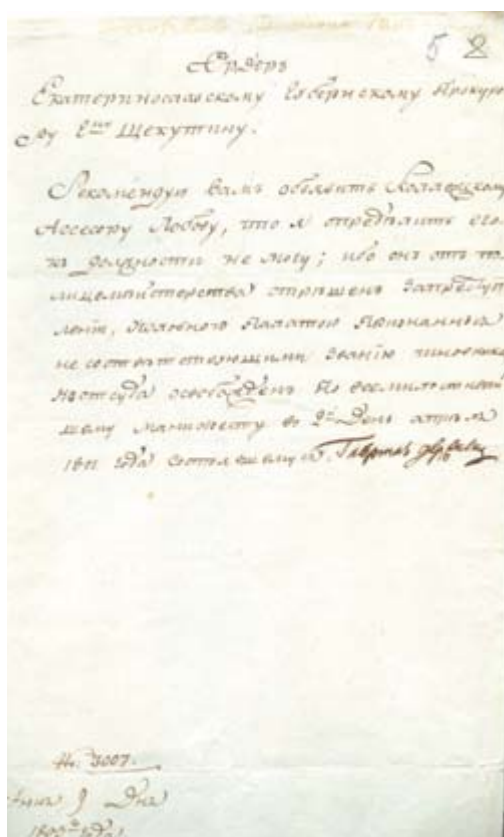 5 2
Ордеръ
Екатеринославскому Губернскому Проку
ру Г.ну Щекутину.
Рекомендую вамъ объявить Коллежскому
Ассесору Лобову, что я опредѣлить его
къ должности не могу; ибо онъ отъ по
лицемейстерства отрѣшенъ за преступ
леніи, Уголовного Палатою признанныя
не соотвѣтствующими званію чиновника
отъ суда освобожденъ по всемилостивѣй
шему манифесту во 2й День апрѣля
года состоявшемуся. Гавріилъ Державинъ
№. 3007.
9 Дня
года